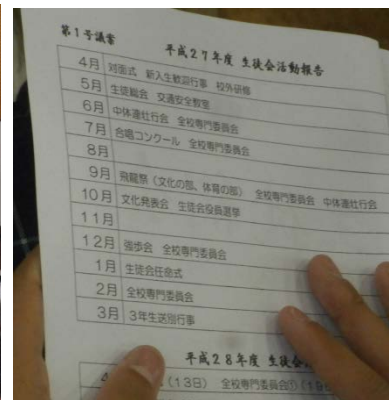 第1号議案
平成27年度 生徒会活動報告
4月 対面式 新入生歓迎行事 校外研修
5月 生徒総会 交通安全教室
6月 中体連壮行会 全校専門委員会
7月 合唱コンクール 全校専門委員会
8月
9月 飛龍祭(文化の部、体育の部) 全校専門委員会 中体連壮行会
10月 文化発表会 生徒会役員選挙
11月
12月 強歩会 全校専門委員会
1月 生徒会任命式
2月 全校専門委員会
3月 3年生送別行事
平成28年度 生徒会
(13日) 全校専門委員会①